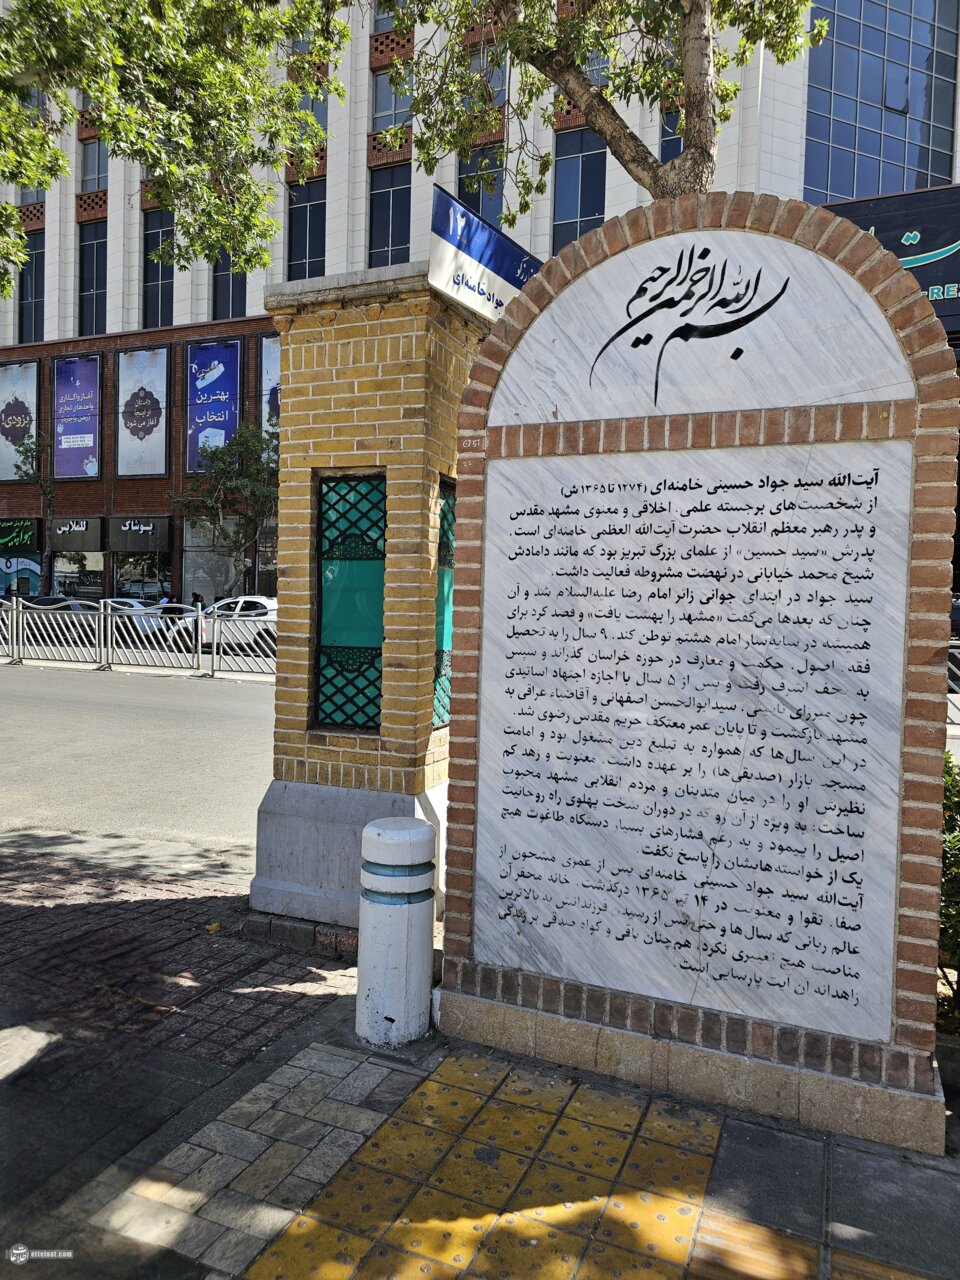 بسم الله الرحمن الرحیم
آیت‌الله سید جواد حسینی خامنه‌ای (۱۲۷۴ تا ۱۳۶۵ ش)
از شخصیت‌های برجسته علمی، اخلاقی و معنوی مشهد مقدس
و پدر رهبر معظم انقلاب حضرت آیت‌الله العظمی خامنه‌ای است.
پدرش «سید حسین» از علمای بزرگ تبریز بود که مانند دامادش
شیخ محمد خیابانی در نهضت مشروطه فعالیت داشت.
سید جواد در ابتدای جوانی زائر امام رضا علیه‌السلام شد و آن
چنان که بعدها می‌گفت «مشهد را بهشت یافت» و قصد کرد برای
همیشه در سایه‌سار امام هشتم توطن کند. ۹ سال را به تحصیل
فقه، اصول، حکمت و معارف در حوزه خراسان گذراند و سپس
به نجف اشرف رفت و پس از ۵ سال با اجازه اجتهاد اساتیدی
چون میرزای نایینی، سیدابوالحسن اصفهانی و آقاضیاء عراقی به
مشهد بازگشت و تا پایان عمر معتکف حریم مقدس رضوی شد.
در این سال‌ها که همواره به تبلیغ دین مشغول بود و امامت
مسجد بازار (صدیقی‌ها) را بر عهده داشت. معنویت و زهد کم
نظیرش او را در میان متدینان و مردم انقلابی مشهد محبوب
ساخت؛ به ویژه از آن رو که در دوران سخت پهلوی راه روحانیت
اصیل را پیمود و به رغم فشارهای بسیار دستگاه طاغوت هیچ
یک از خواسته‌هایشان را پاسخ نگفت.
آیت‌الله سید جواد حسینی خامنه‌ای پس از عمری مشحون از
صفا، تقوا و معنویت در ۱۴ تیر ۱۳۶۵ درگذشت. خانه محقر آن
عالم ربانی که سال‌ها و حتی پس از رسیدن فرزندانش به بالاترین
مناصب هیچ تغییری نکرد، هم‌چنان باقی و گواه صدقی بر زندگی
زاهدانه آن آیت پارسایی است.
۱۲
جواد خامنه‌ای
بهترین
انتخاب
آغاز واگذاری
واحدهای تجاری
داستان
از اینجا
آغاز می شود
بزودی!
پوشاک
ettelaat.com